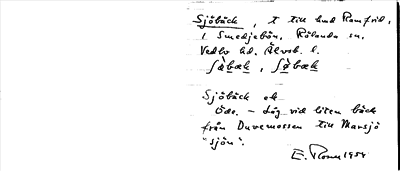 Sjöbäck, t till hmd Ramfrid,
i Smedjebön, Rölanda sn.
Vedbo hd. Älvsb. l.
ʃǿbæk, ʃǿbæk
Sjöbäck ek
Öde. – Låg vid liten bäck
från Duvemossen till Marsjö
"sjön".
E. 1954